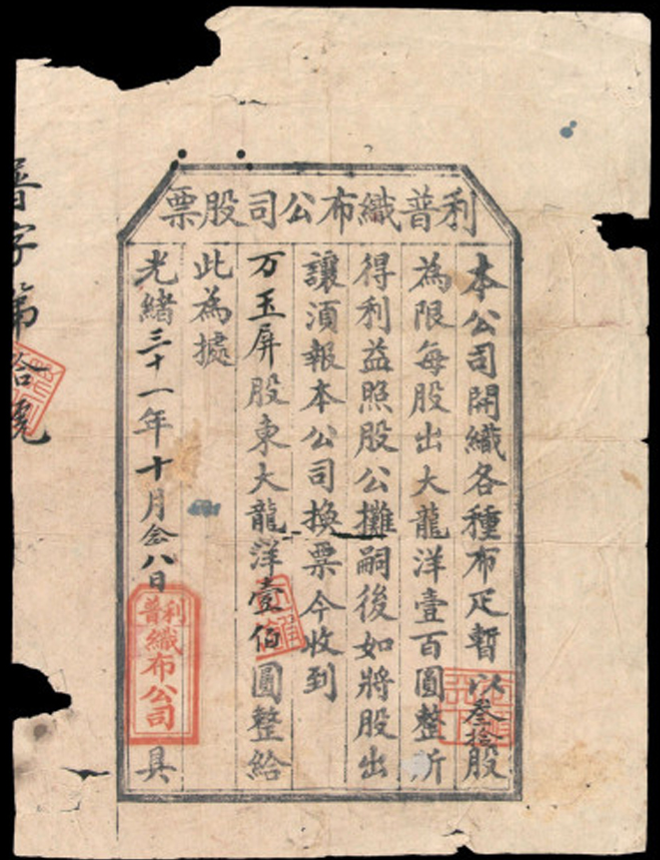 利普織布公司股票
本公司開織各種布疋暫以叁拾股
為限每股出大龍洋壹百圓整所
得利益照股公攤嗣後如將股出
讓湏報本公司換票今收到
万玉屏股東大龍洋壹佰圓整給
此為據
光緒三十一年十月念八日
利普織布公司
具
普字第拾號